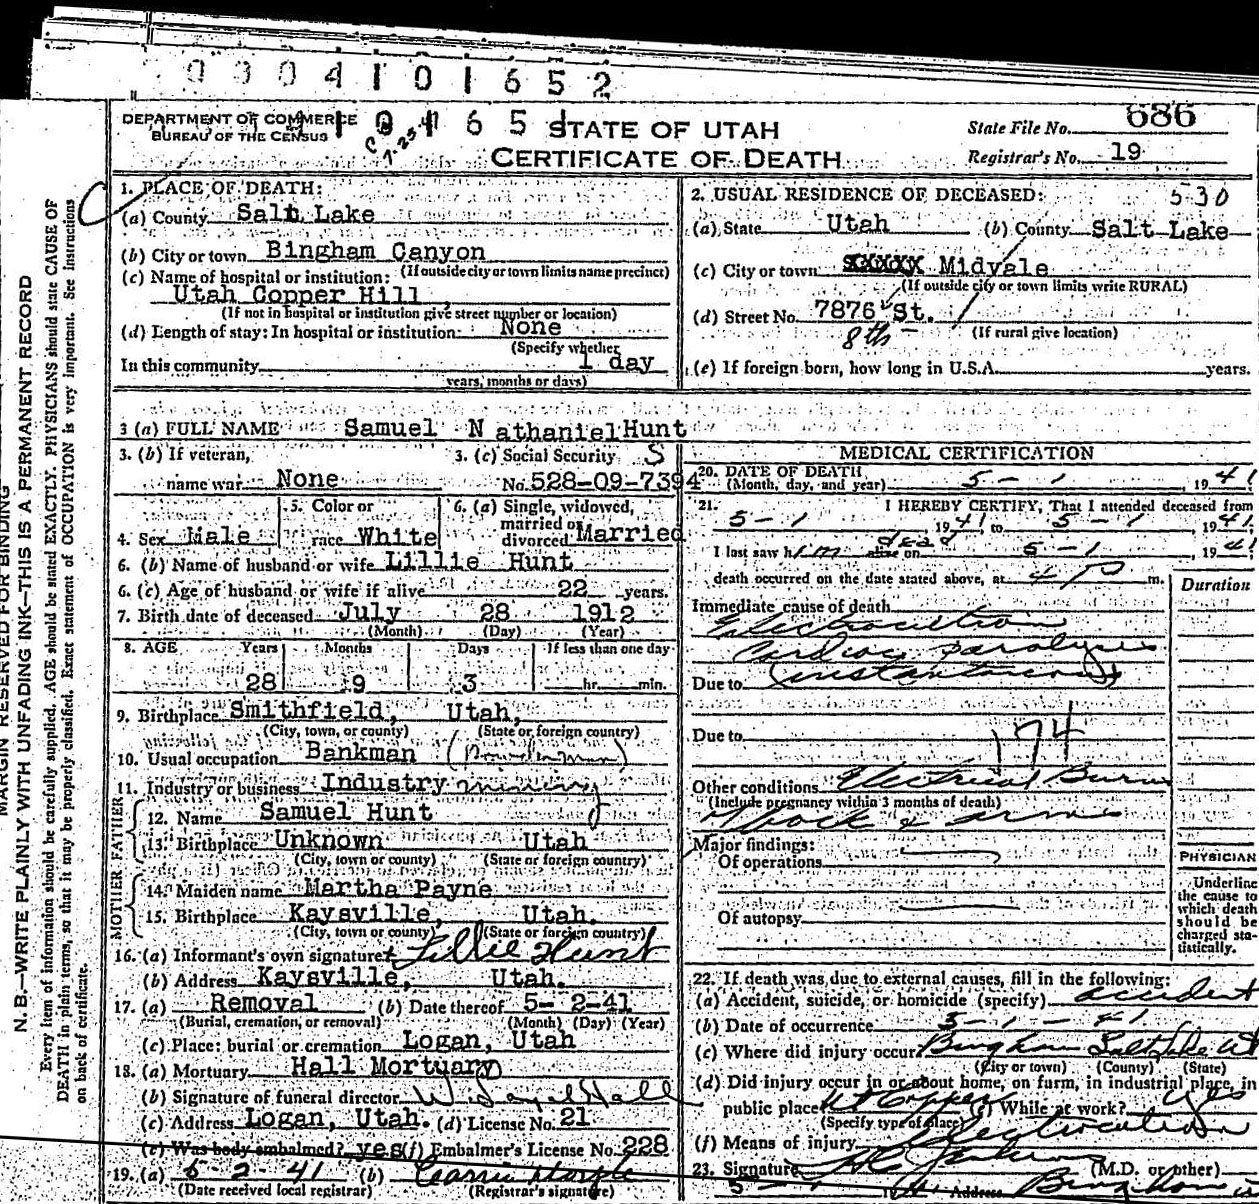 0 3 0 4 1 0 1 6 5 2
DEPARTMENT OF COMMERCE
BUREAU OF THE CENSUS
STATE OF UTAH
CERTIFICATE OF DEATH
State File No. 686
Registrar's No. 19
1. PLACE OF DEATH:
(a) County Salt Lake
(b) City or town Bingham Canyon
(If outside city or town limits name precinct)
(c) Name of hospital or institution:
Utah Copper Hill
(If not in hospital or institution give street number or location)
(d) Length of stay: In hospital or institution None
(Specify whether
In this community 1 day
years, months or days)
2. USUAL RESIDENCE OF DECEASED: 530
(a) State Utah (b) County Salt Lake
(c) City or town XXXXX Midvale
(If outside city or town limits write RURAL)
(d) Street No. 7876 St.
8th
(If rural give location)
(e) If foreign born, how long in U.S.A. years.
3 (a) FULL NAME Samuel N athaniel Hunt
3. (b) If veteran,
name war None
3. (c) Social Security S
No. 528-09-7394
4. Sex Male
5. Color or
race White
6. (a) Single, widowed,
married or
divorced Married
6. (b) Name of husband or wife Lillie Hunt
6. (c) Age of husband or wife if alive 22 years.
7. Birth date of deceased July 28 1912
(Month) (Day) (Year)
8. AGE Years Months Days If less than one day
28 9 3 hr. min.
9. Birthplace Smithfield, Utah,
(City, town, or county) (State or foreign country)
10. Usual occupation Bankman
11. Industry or business Industry mining
FATHER
12. Name Samuel Hunt
13. Birthplace Unknown Utah
(City, town or county) (State or foreign country)
MOTHER
14. Maiden name Martha Payne
15. Birthplace Kaysville, Utah.
(City, town or county) (State or foreign country)
16. (a) Informant's own signature Lillie Hunt
(b) Address Kaysville, Utah.
17. (a) Removal (b) Date thereof 5-2-41
(Burial, cremation, or removal) (Month) (Day) (Year)
(c) Place: burial or cremation Logan, Utah
18. (a) Mortuary Hall Mortuary
(b) Signature of funeral director
(c) Address Logan, Utah. (d) License No. 21
(e) Was body embalmed? yes (f) Embalmer's License No. 228
19. (a) 5-2-41 (b)
(Date received local registrar) (Registrar's signature)
MEDICAL CERTIFICATION
20. DATE OF DEATH
(Month, day, and year) 5 - 1, 1941
21. I HEREBY CERTIFY, That I attended deceased from
5-1 1941 to 5-1 1941
I last saw him alive on dead 5-1, 1941
death occurred on the date stated above, at 4 P m.
Duration
Immediate cause of death
Electrocution
Cardiac paralysis
Due to (instantaneous)
Due to
174
Other conditions Electrical Burns
(Include pregnancy within 3 months of death)
& arms
Major findings:
Of operations
Of autopsy
PHYSICIAN
Underline
the cause to
which death
should be
charged sta-
tistically.
22. If death was due to external causes, fill in the following:
(a) Accident, suicide, or homicide (specify) accident
(b) Date of occurrence 5-1-41
(c) Where did injury occur? Bingham Salt Lake Ut
(City or town) (County) (State)
(d) Did injury occur in or about home, on farm, in industrial place, in
public place? Ut Copper (e) While at work? yes
(Specify type of place)
(f) Means of injury Electrocution
23. Signature (M.D. or other)
Address Bingham
MARGIN RESERVED FOR BINDING
N. B.—WRITE PLAINLY WITH UNFADING INK—THIS IS A PERMANENT RECORD
Every item of information should be carefully supplied. AGE should be stated EXACTLY. PHYSICIANS should state CAUSE OF
DEATH in plain terms, so that it may be properly classified. Exact statement of OCCUPATION is very important. See instructions
on back of certificate.